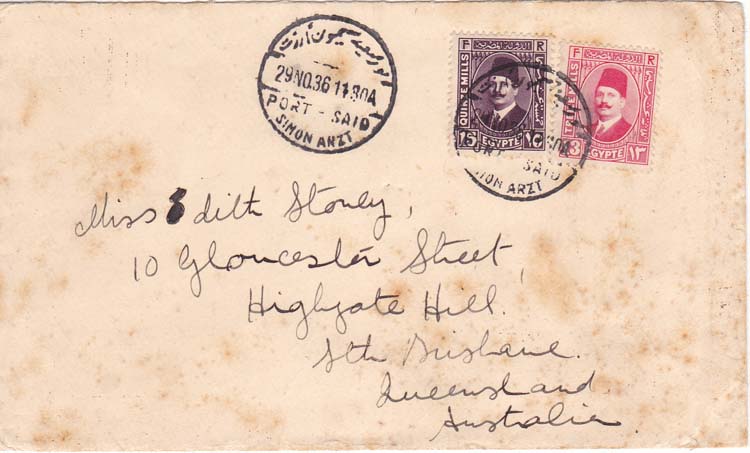 بورسعيد سيمون ارزت
29 NO.36 11.30A
PORT - SAID
SIMON ARZT
F R
QUINZE MILLS
15 ١٥
EGYPTE
F R
MILLS
13 ١٣
EGYPTE
SAID
SIMON ARZT
Miss Edith Stoney,
10 Gloucester Street,
Highgate Hill.
Sth Brisbane.
Queensland
Australia